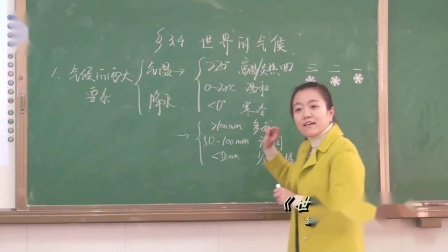 §3.4 世界的气候
1. 气候的两大要素
气温 →
>20° 高温/炎热
0-20℃ 温和
<0° 寒冷
降水
→
>100mm 多雨
50-100mm
<50mm 少
三 二 一
《世